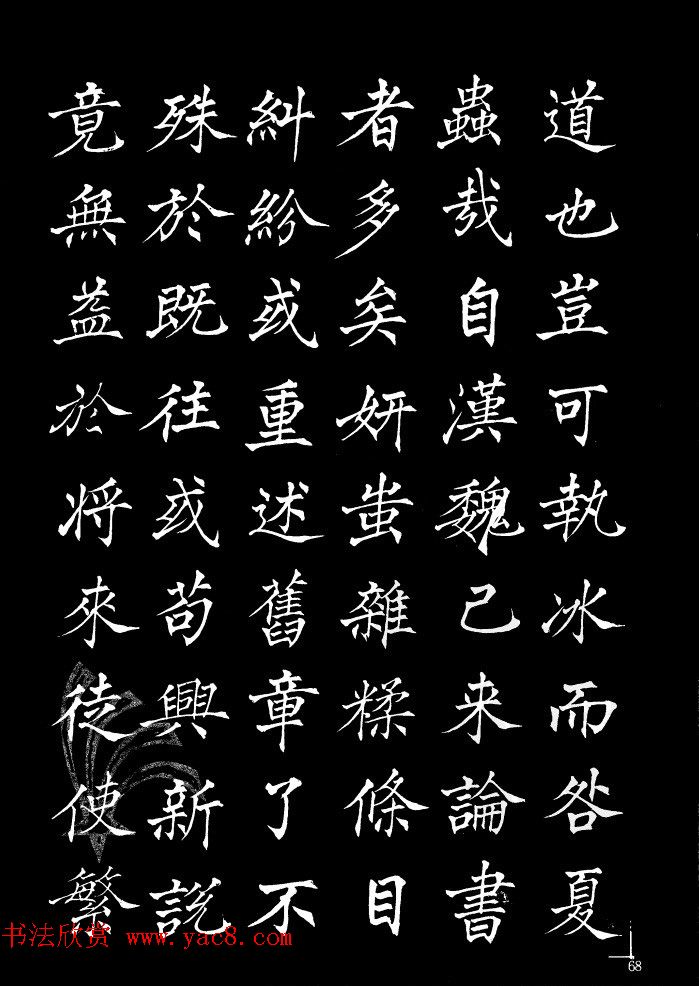 道也豈可執冰而咎夏
蟲哉自漢魏已来論書
者多矣妍蚩雜糅條目
糾紛或重述舊章了不
殊於既往或苟興新説
竟無益於将來徒使繁
书法欣赏 www.yac8.com
68